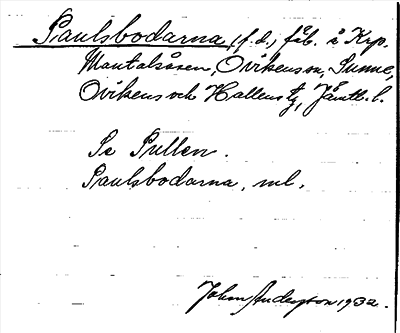 Paulsbodarna (f.d.) fäb. å Krp.
Mantalsåsen, Ovikens sn, Sunne,
Ovikens och Hallens tg, Jämtl. l.
Se Pullen.
Paulsbodarna, ml.
John Anderson 1932.